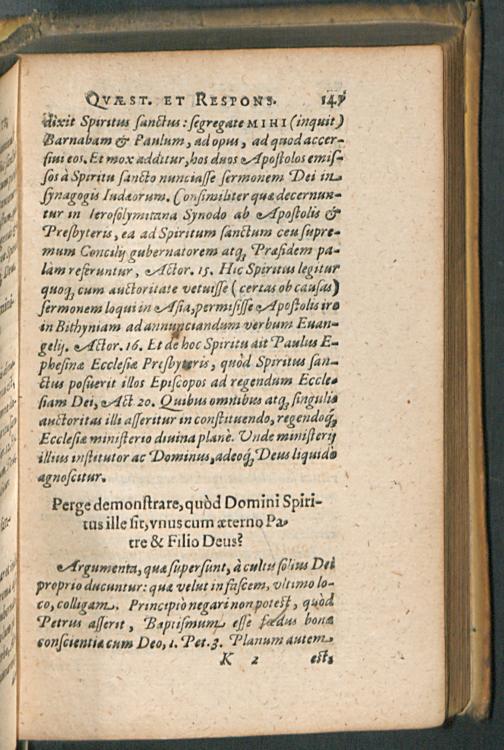 QVÆST. ET RESPONS. 147
dixit Spiritus sanctus: segregate MIHI (inquit)
Barnabam & Paulum, ad opus, ad quod accer-
sivi eos. Et mox additur, hos duos Apostolos emis-
sos à Spiritu sancto nunciasse sermonem Dei in
synagogis Iudæorum. Consimiliter quæ decernun-
tur in Ierosolymitana Synodo ab Apostolis &
Presbyteris, ea ad Spiritum sanctum ceu supre-
mum Concilij gubernatorem atq; Præsidem pa-
làm referuntur, Actor. 15. Hic Spiritus legitur
quoq; cum auctoritate vetuisse (certas ob causas)
sermonem loqui in Asia, permisisse Apostolis ire
in Bithyniam ad annunciandum verbum Euan-
gelij. Actor. 16. Et de hoc Spiritu ait Paulus E-
phesinæ Ecclesiæ Presbyteris, quòd Spiritus san-
ctus posuerit illos Episcopos ad regendum Eccle-
siam Dei, Act 20. Quibus omnibus atq; singulis
auctoritas illi asseritur in constituendo, regendoq;
Ecclesiæ ministerio diuina planè. Unde ministerij
illius institutor ac Dominus, adeoq; Deus liquidò
agnoscitur.
Perge demonstrare, quòd Domini Spiri-
tus ille sit, vnus cum æterno Pa-
tre & Filio Deus?
Argumenta, quæ supersunt, à cultu solius Dei
proprio ducuntur: quæ velut in fascem, vltimo lo-
co, colligam. Principiò negari non potest, quòd
Petrus asserit, Baptismum esse fœdus bonæ
conscientiæ cum Deo, 1. Pet. 3. Planum autem
K 2 est,